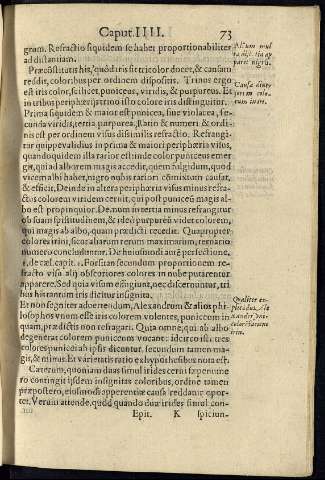 Caput. IIII. 73
gium. Refractio siquidem se habet proportionabiliter
ad distantiam.
Præconstitutis his, quòd iris sit tricolor docet, & causam
reddit, coloribus per ordinem dispositis. Trino ergo
est iris color, scilicet, puniceus, viridis, & purpureus. Et
in tribus peripherijs trino isto colore iris distinguitur.
Prima siquidem & maior est punicea, siue violacea, se-
cunda viridis, tertia purpurea. Ratio & numeri & ordi-
nis est per ordinem visus dissimilis refractio. Refrangi-
tur quippe validius in prima & maiori peripheria visus,
quando quidem illa rarior est inde color puniceus emer-
git, qui ad alborem magis accedit, quem fulgidum, quod
vicem albi habet, nigro nubis ration commixtum causat,
& efficit. Deinde in altera peripheria visus minus refra-
ctus colorem viridem cernit, qui post puniceũ magis al-
bo est propinquior. Demum in tertia minus refrangitur
ob suam spissitudinem, & ideò purpureũ videt colorem,
qui magis ab albo, quam prædicti recedit. Quapropter
colores irini, sicut aliarum rerum maximarum, ternario
numero concluduntur. De huiusmodi autẽ perfectione,
1. de cæl. capit. 1. Forsitan secundum proportionem re-
fracto visu alij obscuriores colores in nube putarentur
apparere. Sed quia visum effugiunt, nec discernuntur, tri
bus his tantum iris dicitur insignita.
Et non segniter aduertendum, Alexandrum & alios phi-
losophos vnum esse iris colorem volentes, puniceum in
quam, prædictis non refragari. Quia omne, qui ab albo
degenerat colorem puniceum vocant: idcirco isti tres
colores punicei ab ipsis dicuntur, secundum tamen ma-
gis, & minus. Et varietatis ratio ex hypothesibus nota est.
Cæterum, quoniam duas simul irides certis sæpe nume
ro contingit ipsdem insignitas coloribus, ordine tamen
præpostero, eiusmodi apparentiæ causa reddatur opor-
tet. Verum attende, quòd quando duæ irides simul con-
Epit. K spiciun-
Causa diuer
Qualiter